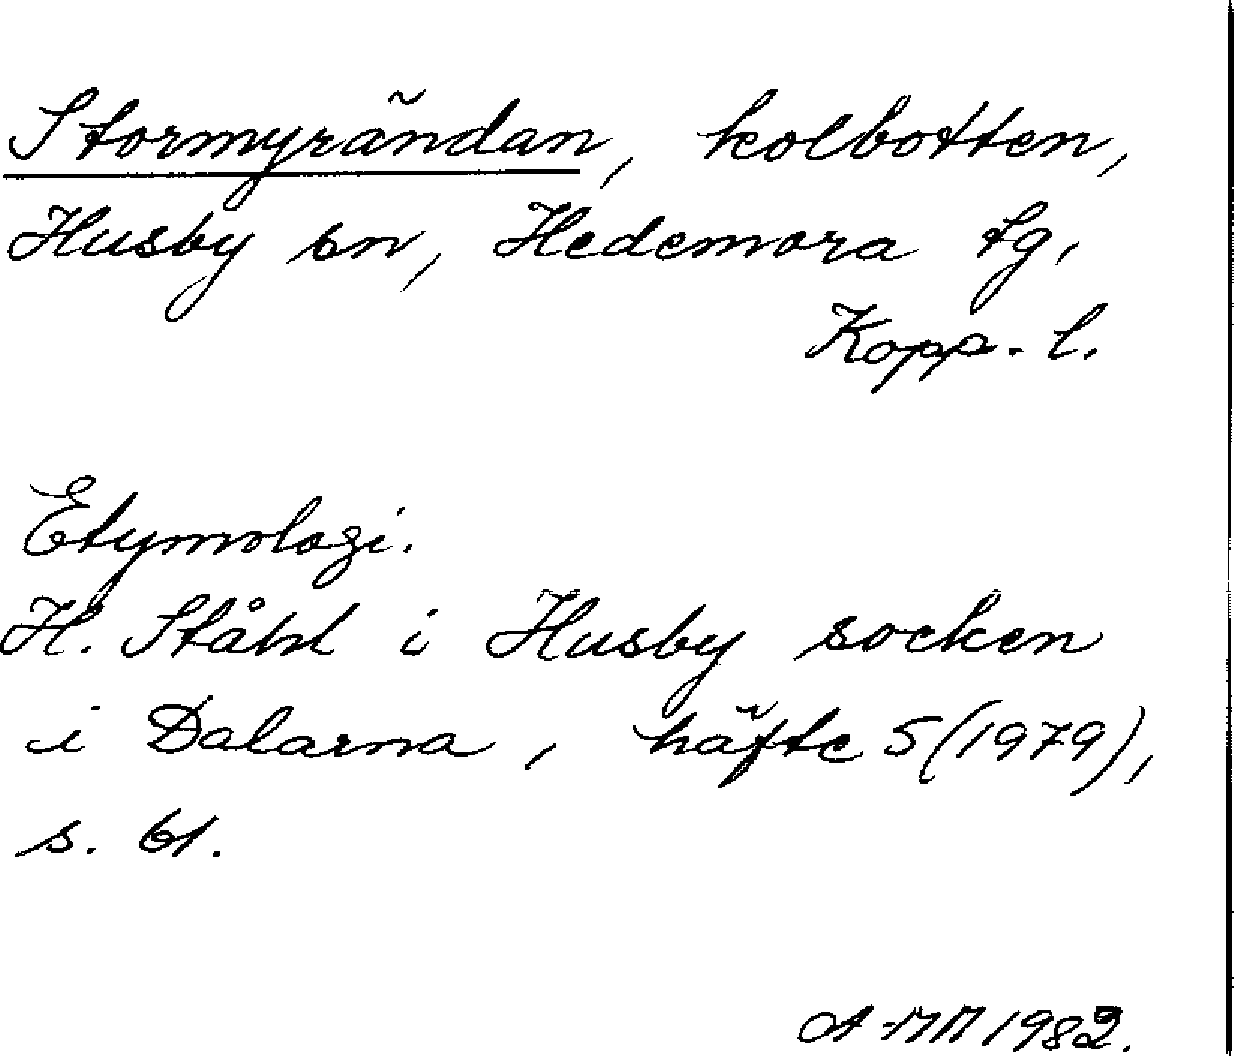 Stormyrändan, kolbotten,
Husby sn, Hedemora tg,
Kopp. l.
Etymologi.
H. Ståhl i Husby socken
i Dalarna, häfte 5 (1979),
s. 61.
1982.